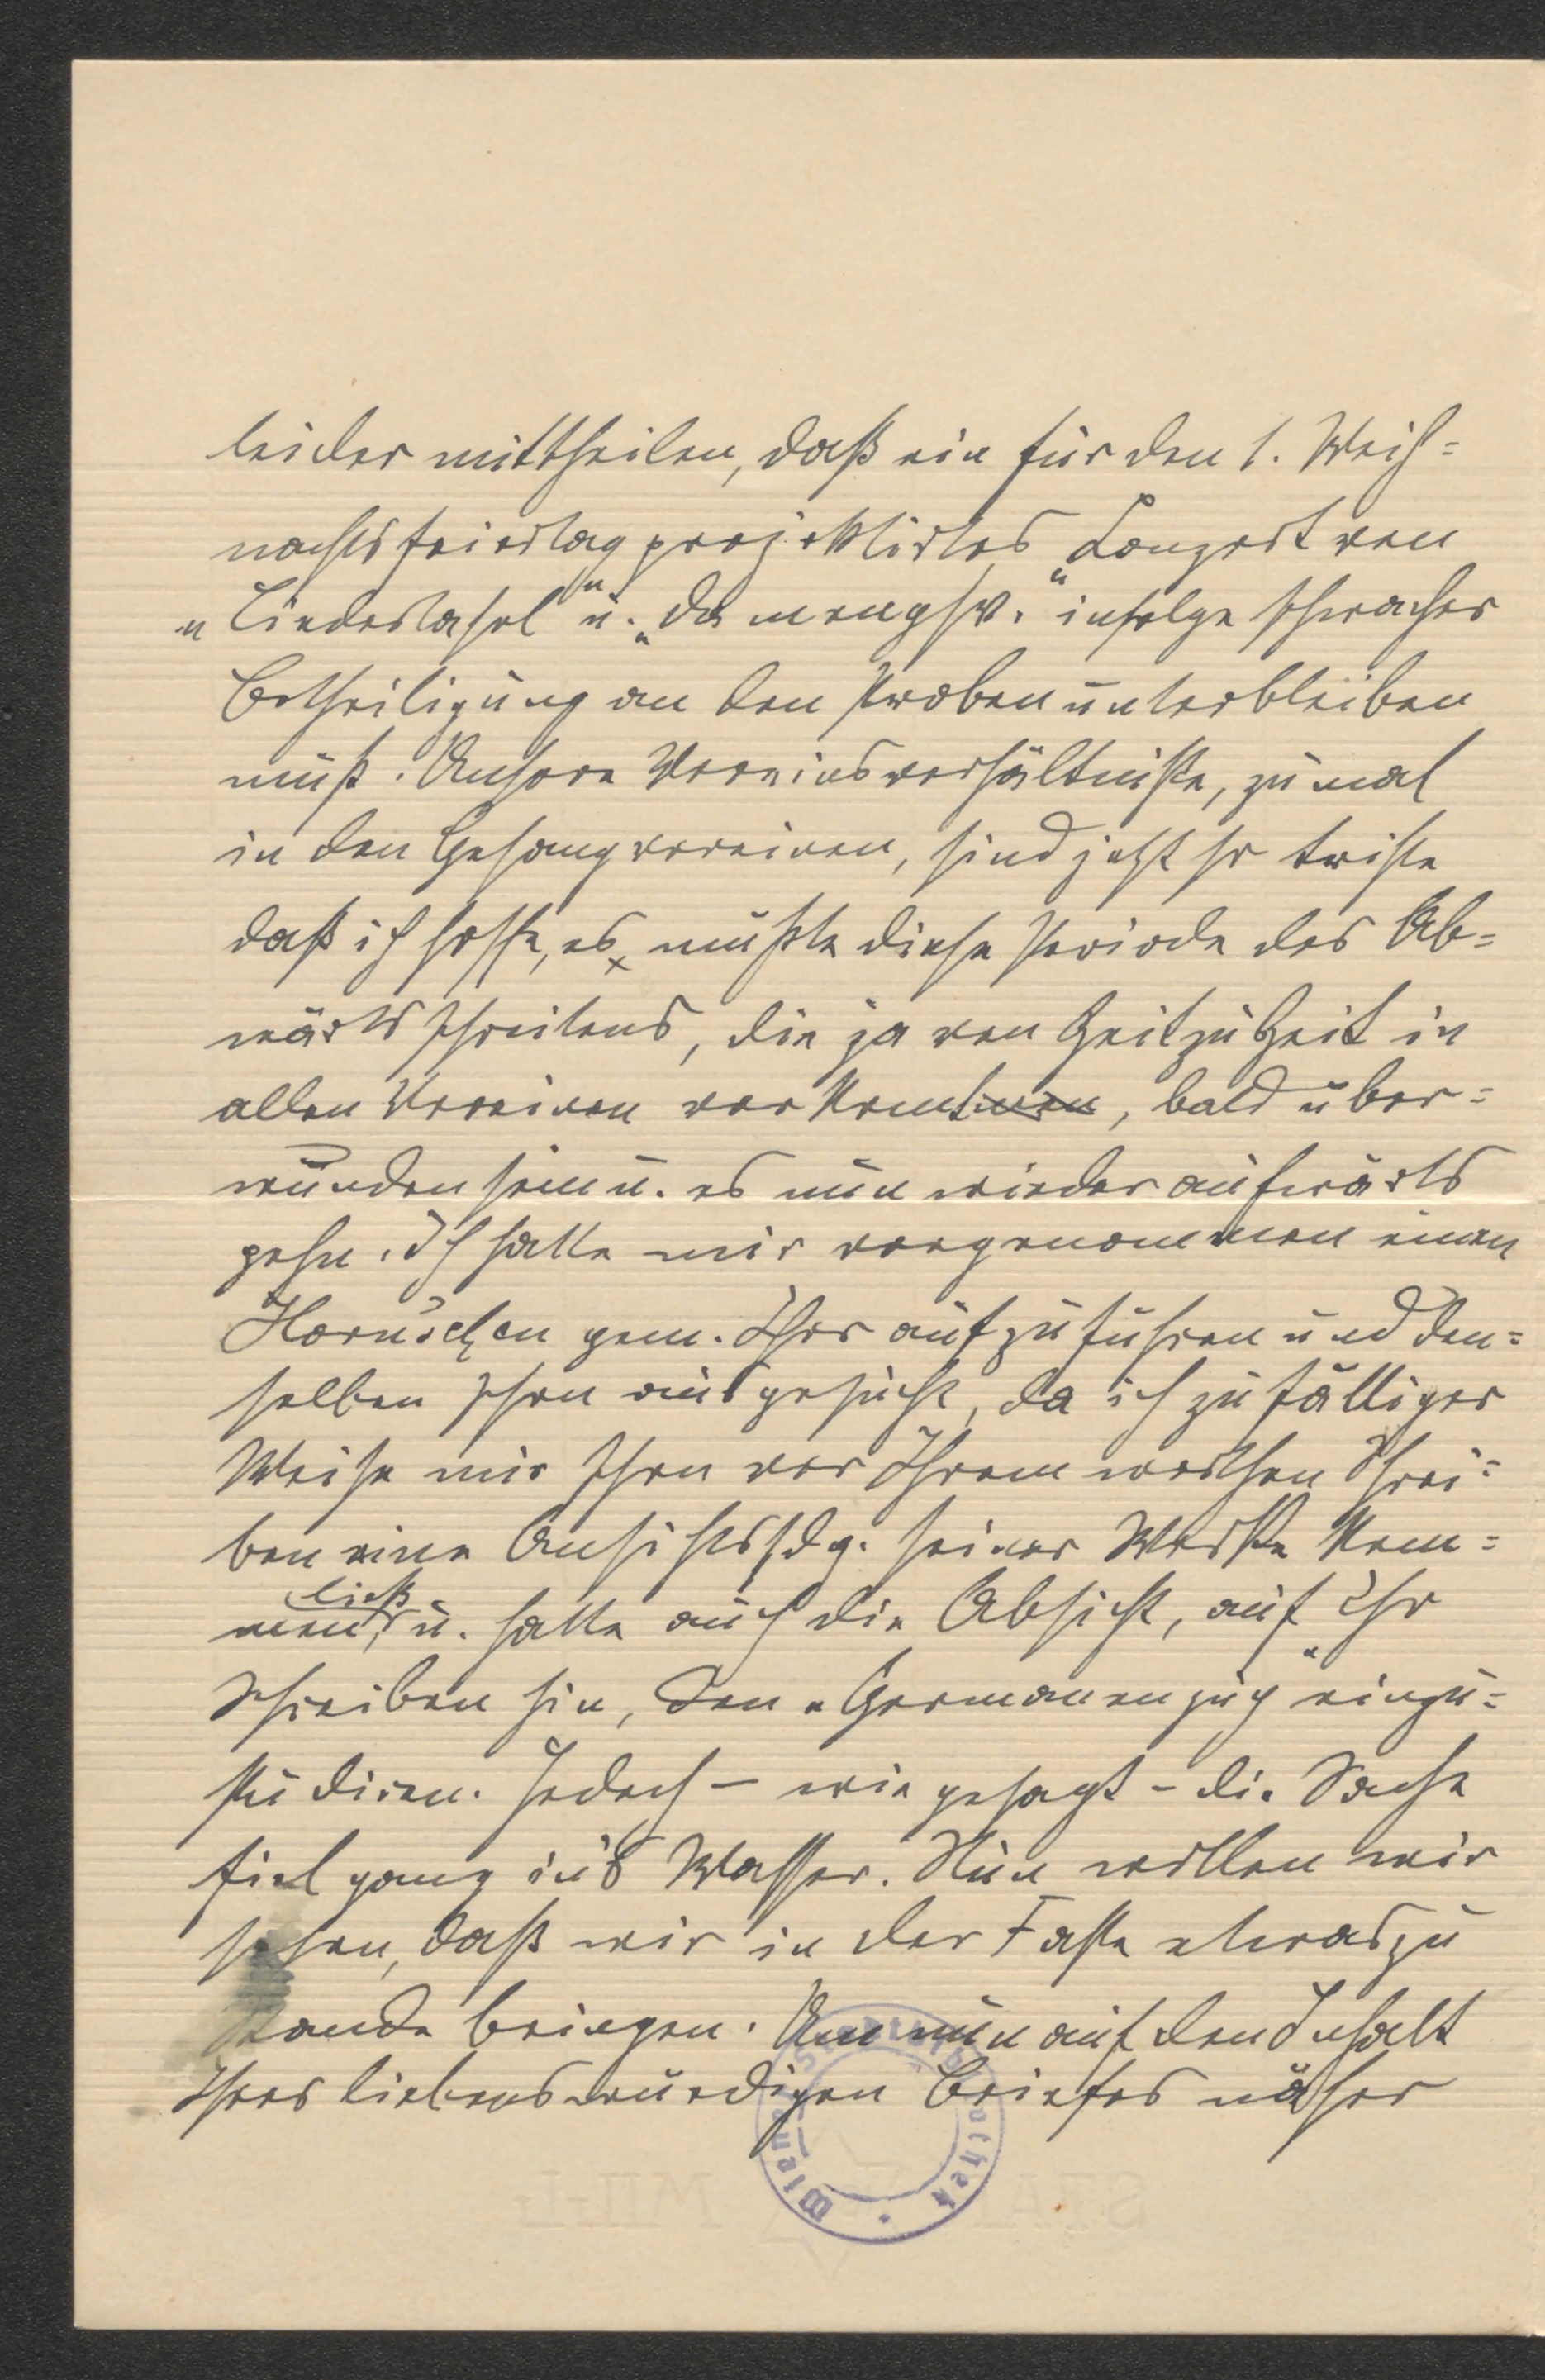 leider mittheilen, daß ein für den 1. Weih=
nachtsfeiertag projektirtes Conzert von
„Liedertafel“ u. „Damengsv.“ infolge schwacher
Betheiligung an den Proben unterbleiben
muß. Unsere Vereinsverhältniße, zumal
in den Gesangvereinen, sind jetzt so triste
daß ich hoffe, es müßte diese Periode des Ab=
wärtsschreitens, die ja von Zeit zu Zeit in
allen Vereinen vorkomt, bald über=
wunden sein u. es nun wieder aufwärts
gehn. Ich hatte mir vorgenommen einen
Horn'schen gem. Chor aufzuführen und den=
selben schon ausgesucht, da ich zufälliger
Weise mir schon vor Ihrem werthen Schrei=
ben eine Ansichtssdg. seiner Werke kom=
men ließ u. hatte auch die Absicht, auf Ihr
Schreiben hin, den „Germanenzug“ einzu=
studiren. Jedoch – wie gesagt – die Sache
fiel ganz in's Wasser. Nun wollen wir
sehen, daß wir in der Faste etwas zu
stande bringen. Um nun auf den Inhalt
Ihres liebenswürdigen Briefes näher
Wiener Stadtbibliothek